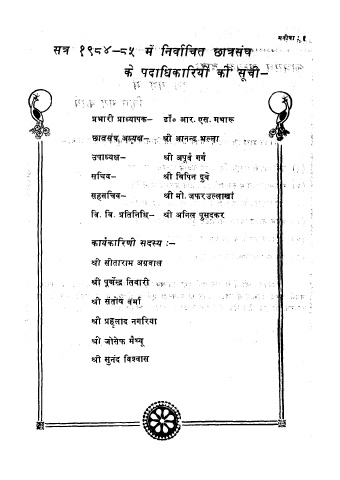 मनीषा : १
सत्र १९८४-८५ में निर्वाचित छात्रसंघ
के पदाधिकारियों की सूची-
प्रभारी प्राध्यापक- डॉ० आर. एस. गधारू
छात्रसंघ अध्यक्ष- श्री आनन्द भल्ला
उपाध्यक्ष- श्री अपूर्व गर्ग
सचिव- श्री विपिन दुबे
सहसचिव- श्री मो. जफरउल्लाखां
वि. वि. प्रतिनिधि- श्री अनिल पुसदकर
कार्यकारिणी सदस्य :-
श्री सीताराम अग्रवाल
श्री पूर्णेन्द्र तिवारी
श्री संतोष वर्मा
श्री प्रहलाद नगरिया
श्री जोसेफ मैथ्यू
श्री सुनंद विश्वास